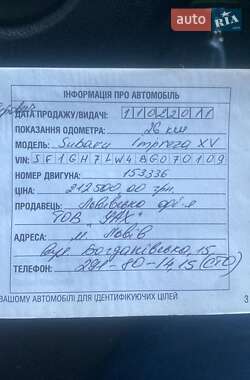 AUTO RIA
ІНФОРМАЦІЯ ПРО АВТОМОБІЛЬ
ДАТА ПРОДАЖУ/ВИДАЧІ: 11022011
ПОКАЗАННЯ ОДОМЕТРА: 26 км
МОДЕЛЬ: Subaru Impreza XV
VIN: SF1GH7LW4BG070109
НОМЕР ДВИГУНА: 153336
ЦІНА: 212500,00 грн.
ПРОДАВЕЦЬ: Львівська філ-я
ТОВ "УАХ"
АДРЕСА: м. Львів
вул. Богданівська, 15
ТЕЛЕФОН: 291-80-14,15 (СТО)
ВАШОМУ АВТОМОБІЛІ ДЛЯ ІДЕНТИФІКУЮЧИХ ЦІЛЕЙ
3